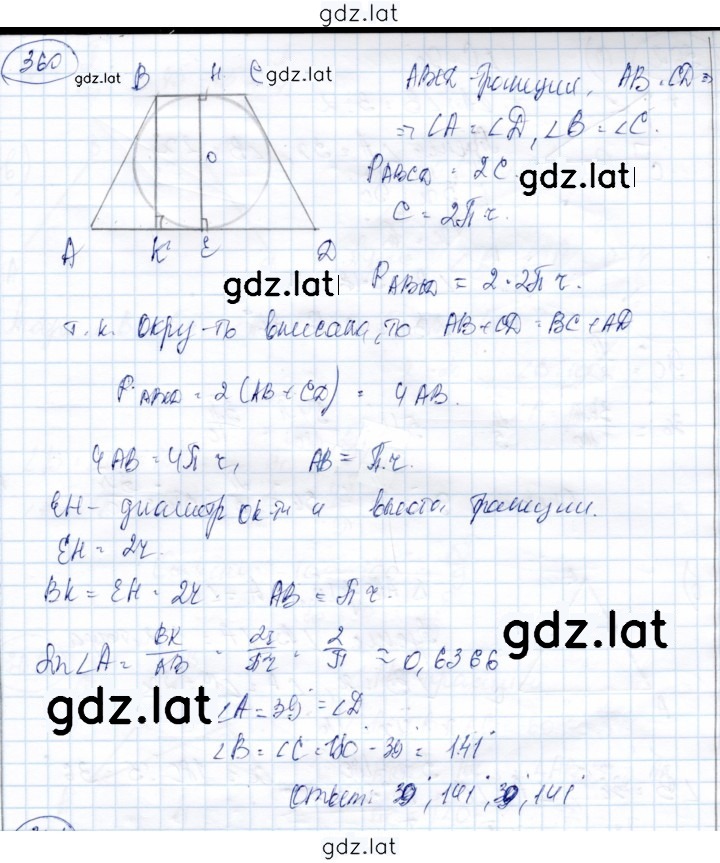 gdz.lat
360
gdz.lat
B H C gdz.lat
O
A K E D
ABCD - трапеция, AB = CD ⇒
⇒ ∠A = ∠D, ∠B = ∠C.
P ABCD = 2C
gdz.lat
C = 2πr.
gdz.lat
P ABCD = 2·2πr.
т.к. окру-ть вписана, то AB+CD=BC+AD
P ABCD = 2(AB+CD) = 4AB.
4AB = 4πr, AB = πr.
EH - диаметр ок-ти и высота трапеции.
EH = 2r.
BK = EH = 2r. AB = πr.
gdz.lat
Sin∠A = BK/AB = 2r/πr = 2/π ≈ 0,6366
gdz.lat
∠A = 39° = ∠D
∠B = ∠C = 180° - 39° = 141°
Ответ: 39°, 141°, 39°, 141°
gdz.lat